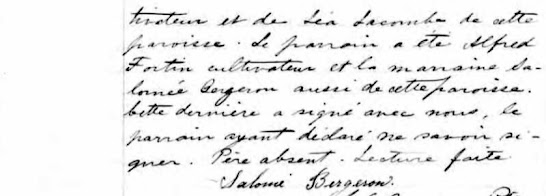 tivateur et de Léa Lacombe de cette
paroisse. Le parrain a été Alfred
Fortin cultivateur et la marraine Sa-
lomée Bergeron aussi de cette paroisse.
Cette dernière a signé avec nous, le
parrain ayant déclaré ne savoir si-
gner. Père absent. Lecture faite
Salomé Bergeron.